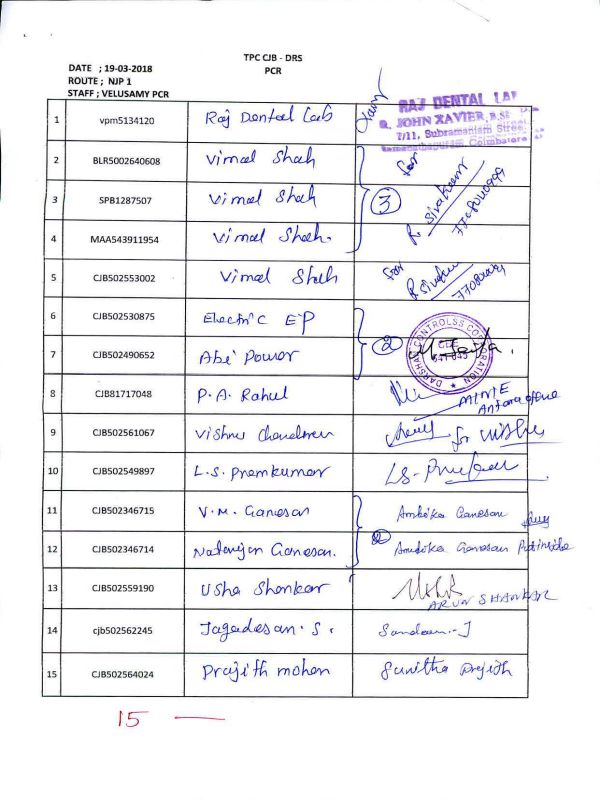 TPC CJB - DRS
PCR
DATE ; 19-03-2018
ROUTE ; NJP 1
STAFF ; VELUSAMY PCR
1 vpm5134120 Raj Dental Lab RAJ DENTAL LAB
JOHN XAVIER, B.Sc
7/11, Subramaniam Street,
Ramanathapuram Coimbatore
2 BLR5002640608 Vimal Shah for
3 SPB1287507 Vimal Shah 3 R. Sivakumar
4 MAA543911954 Vimal Shah.
5 CJB502553002 Vimal Shah for
6 CJB502530875 Electric EP
7 CJB502490652 Abi Power 2 DARSHAN CONTROLSS CORPORATION
8 CJB81717048 P.A. Rahul
9 CJB502561067 Vishnu for
10 CJB502549897 L.S. Premkumar LS-
11 CJB502346715 V.M. Ganesan Ambika Ganesan
12 CJB502346714 Natarajan Ganesan. 2 Ambika Ganesan
13 CJB502559190 Usha Shankar
ARUN SHANKAR
14 cjb502562245 Jagadesan. S. Sandaan.-J
15 CJB502564024 Prajith mohan Sunitha Prejith
15 —